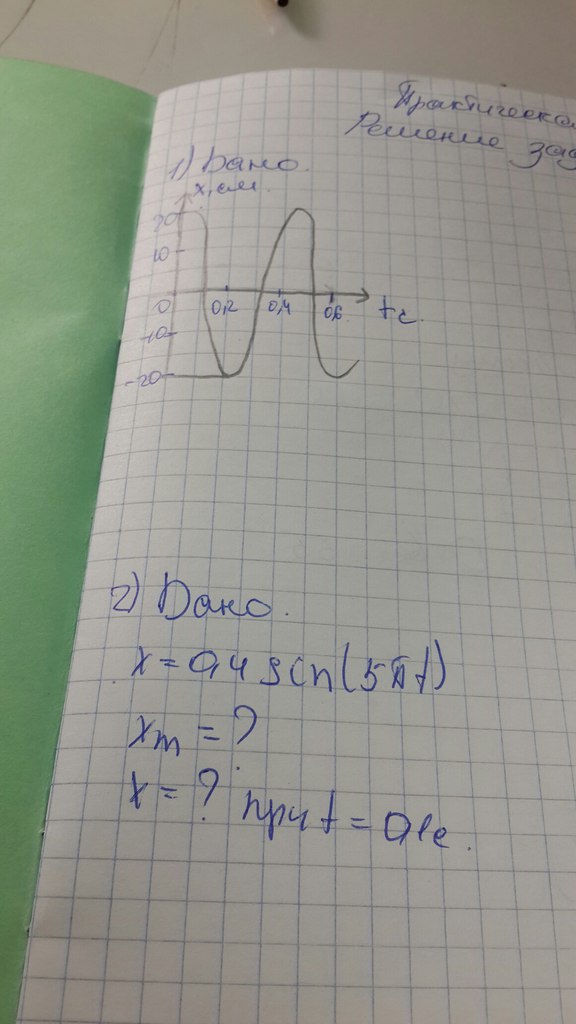 Практическа
Решение зад
1) Дано.
x, см.
20
10
0
0,2
0,4
0,6
t c.
-10
-20
2) Дано.
x = 0,4 sin(5πt)
xm = ?
x = ? при t = 0,1c.